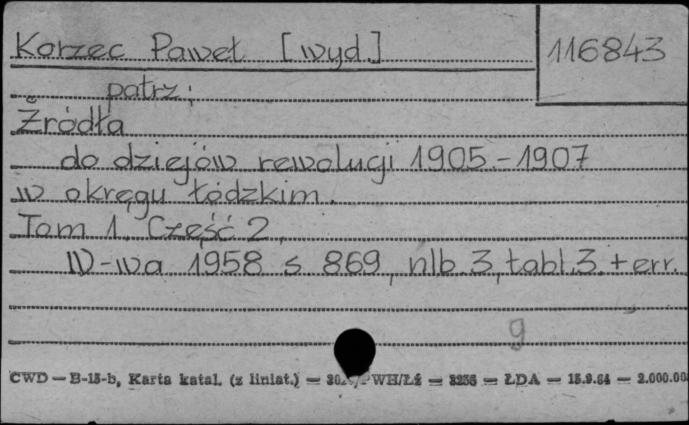 Korzec Paweł [wyd.]
116843
patrz:
Źródła
do dziejów rewolucji 1905-1907
w okręgu łódzkim.
Tom 1. Część 2.
W-wa 1958 s 869, nlb. 3, tabl. 3. + err.
9
CWD — B-15-b, Karta katal. (z liniat.) — WH/Łź — ŁDA — 15.9.64 — 2.000.00